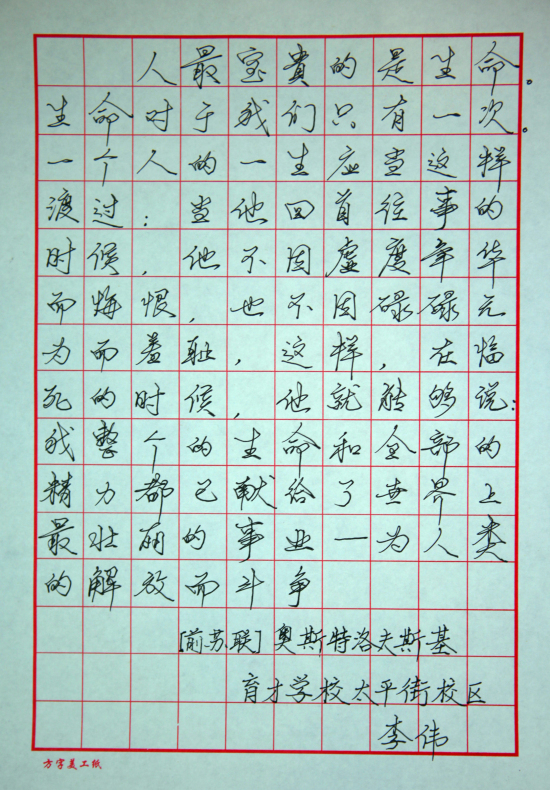 人最宝貴的是生命。
生命对于我们只有一次。
一个人的一生应当这样
渡过：当他回首往事的
时候，他不因虚度年华
而悔恨，也不因碌碌无
为而羞耻，这样，在临
死的时候，他就能够说：
我整个的生命和全部的
精力都已献给了世界上
最壮丽的事业——为人类
的解放而斗争
[前苏联] 奥斯特洛夫斯基
育才学校太平街校区
李伟
方字美工纸